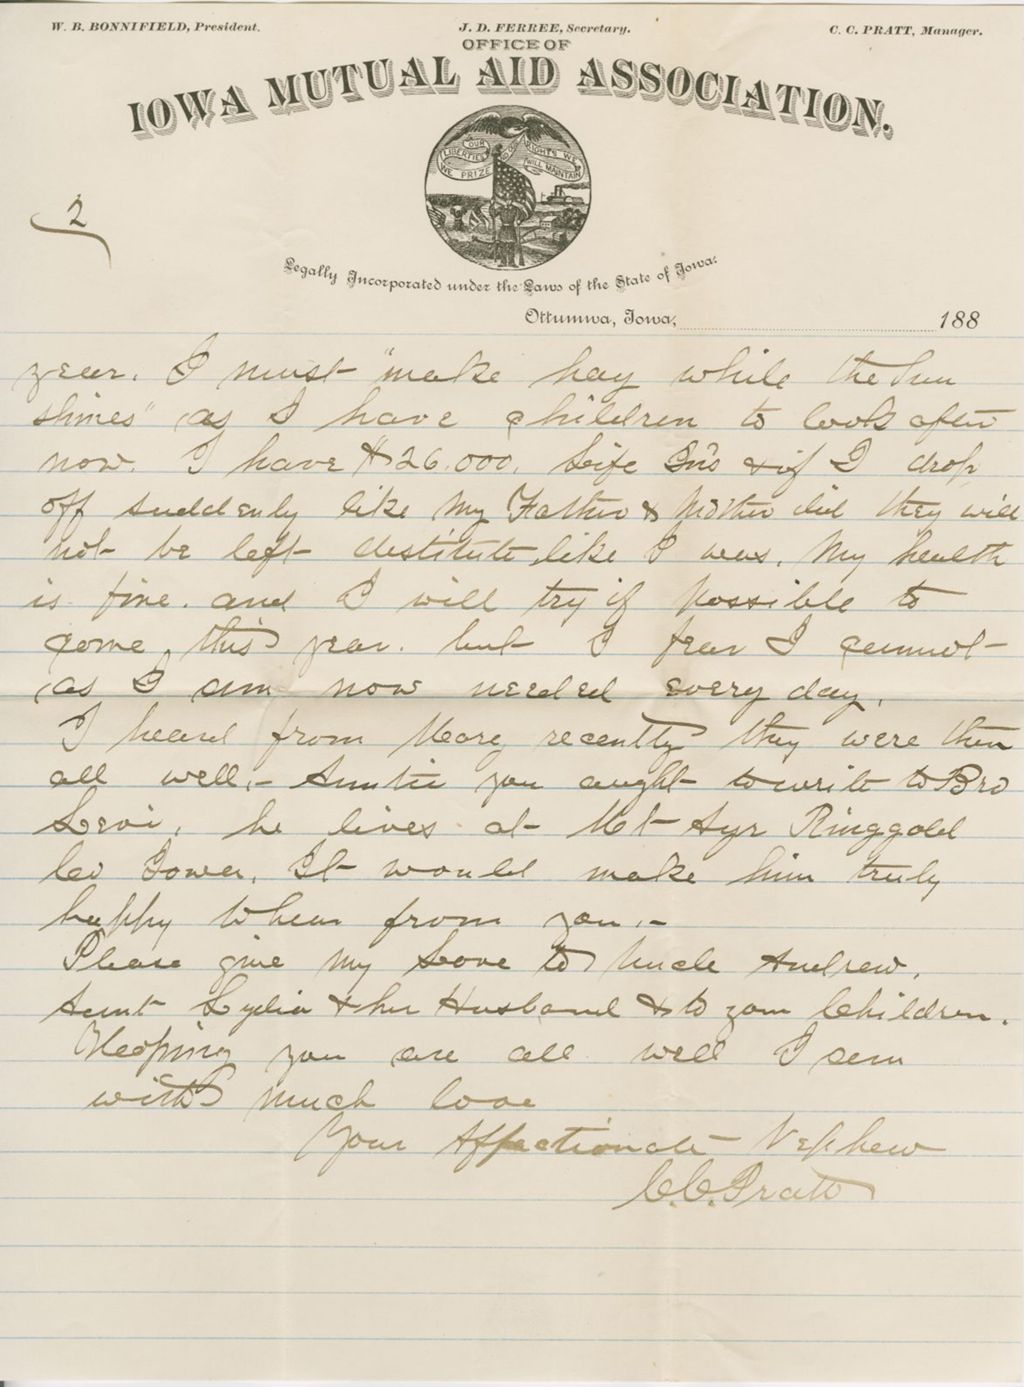 W. B. BONNIFIELD, President.
J. D. FERREE, Secretary.
C. C. PRATT, Manager.
OFFICE OF
IOWA MUTUAL AID ASSOCIATION.
OUR LIBERTIES WE PRIZE AND OUR RIGHTS WE WILL MAINTAIN
2
Legally Incorporated under the Laws of the State of Iowa.
Ottumwa, Iowa, 188
year. I must "make hay while the Sun
shines" as I have children to look after
now. I have $26.000. Life Ins & if I drop
off suddenly like My Father & Mother did they will
not be left destitute like I was. My health
is fine. and I will try if possible to
come this year. but I fear I cannot
as I am now needed every day.
I heard from recently they were then
all well,- Auntie you aught to write to Bro
Levi, he lives at Mt Ayr Ringgold
Co Iowa. It would make him truly
happy to hear from you.-
Please give My Love to Uncle Andrew.
Aunt Lydia & her Husband & to your Children.
Hopeing you are all well I am
with much love
Your Affectionate Nephew
C.C. Pratt